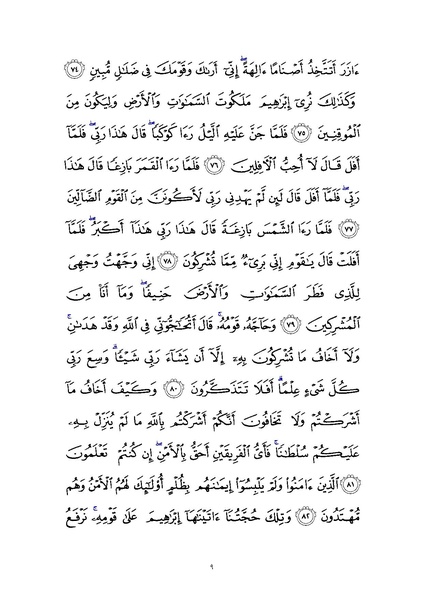 ءَازَرَ أَتَتَّخِذُ أَصْنَامًا ءَالِهَةً ۖ إِنِّىٓ أَرَىٰكَ وَقَوْمَكَ فِى ضَلَٰلٍ مُّبِينٍ ٧٤
وَكَذَٰلِكَ نُرِىٓ إِبْرَٰهِيمَ مَلَكُوتَ ٱلسَّمَٰوَٰتِ وَٱلْأَرْضِ وَلِيَكُونَ مِنَ
ٱلْمُوقِنِينَ ٧٥ فَلَمَّا جَنَّ عَلَيْهِ ٱلَّيْلُ رَءَا كَوْكَبًا ۖ قَالَ هَٰذَا رَبِّى ۖ فَلَمَّآ
أَفَلَ قَالَ لَآ أُحِبُّ ٱلْءَافِلِينَ ٧٦ فَلَمَّا رَءَا ٱلْقَمَرَ بَازِغًا قَالَ هَٰذَا
رَبِّى ۖ فَلَمَّآ أَفَلَ قَالَ لَئِن لَّمْ يَهْدِنِى رَبِّى لَأَكُونَنَّ مِنَ ٱلْقَوْمِ ٱلضَّآلِّينَ
٧٧ فَلَمَّا رَءَا ٱلشَّمْسَ بَازِغَةً قَالَ هَٰذَا رَبِّى هَٰذَآ أَكْبَرُ ۖ فَلَمَّآ
أَفَلَتْ قَالَ يَٰقَوْمِ إِنِّى بَرِىٓءٌ مِّمَّا تُشْرِكُونَ ٧٨ إِنِّى وَجَّهْتُ وَجْهِىَ
لِلَّذِى فَطَرَ ٱلسَّمَٰوَٰتِ وَٱلْأَرْضَ حَنِيفًا ۖ وَمَآ أَنَا۠ مِنَ
ٱلْمُشْرِكِينَ ٧٩ وَحَآجَّهُۥ قَوْمُهُۥ ۚ قَالَ أَتُحَٰٓجُّوٓنِّى فِى ٱللَّهِ وَقَدْ هَدَىٰنِ ۚ
وَلَآ أَخَافُ مَا تُشْرِكُونَ بِهِۦٓ إِلَّآ أَن يَشَآءَ رَبِّى شَيْـًٔا ۗ وَسِعَ رَبِّى
كُلَّ شَىْءٍ عِلْمًا ۗ أَفَلَا تَتَذَكَّرُونَ ٨٠ وَكَيْفَ أَخَافُ مَآ
أَشْرَكْتُمْ وَلَا تَخَافُونَ أَنَّكُمْ أَشْرَكْتُم بِٱللَّهِ مَا لَمْ يُنَزِّلْ بِهِۦ
عَلَيْكُمْ سُلْطَٰنًا ۚ فَأَىُّ ٱلْفَرِيقَيْنِ أَحَقُّ بِٱلْأَمْنِ ۖ إِن كُنتُمْ تَعْلَمُونَ
٨١ ٱلَّذِينَ ءَامَنُوا۟ وَلَمْ يَلْبِسُوٓا۟ إِيمَٰنَهُم بِظُلْمٍ أُو۟لَٰٓئِكَ لَهُمُ ٱلْأَمْنُ وَهُم
مُّهْتَدُونَ ٨٢ وَتِلْكَ حُجَّتُنَآ ءَاتَيْنَٰهَآ إِبْرَٰهِيمَ عَلَىٰ قَوْمِهِۦ ۚ نَرْفَعُ
٩